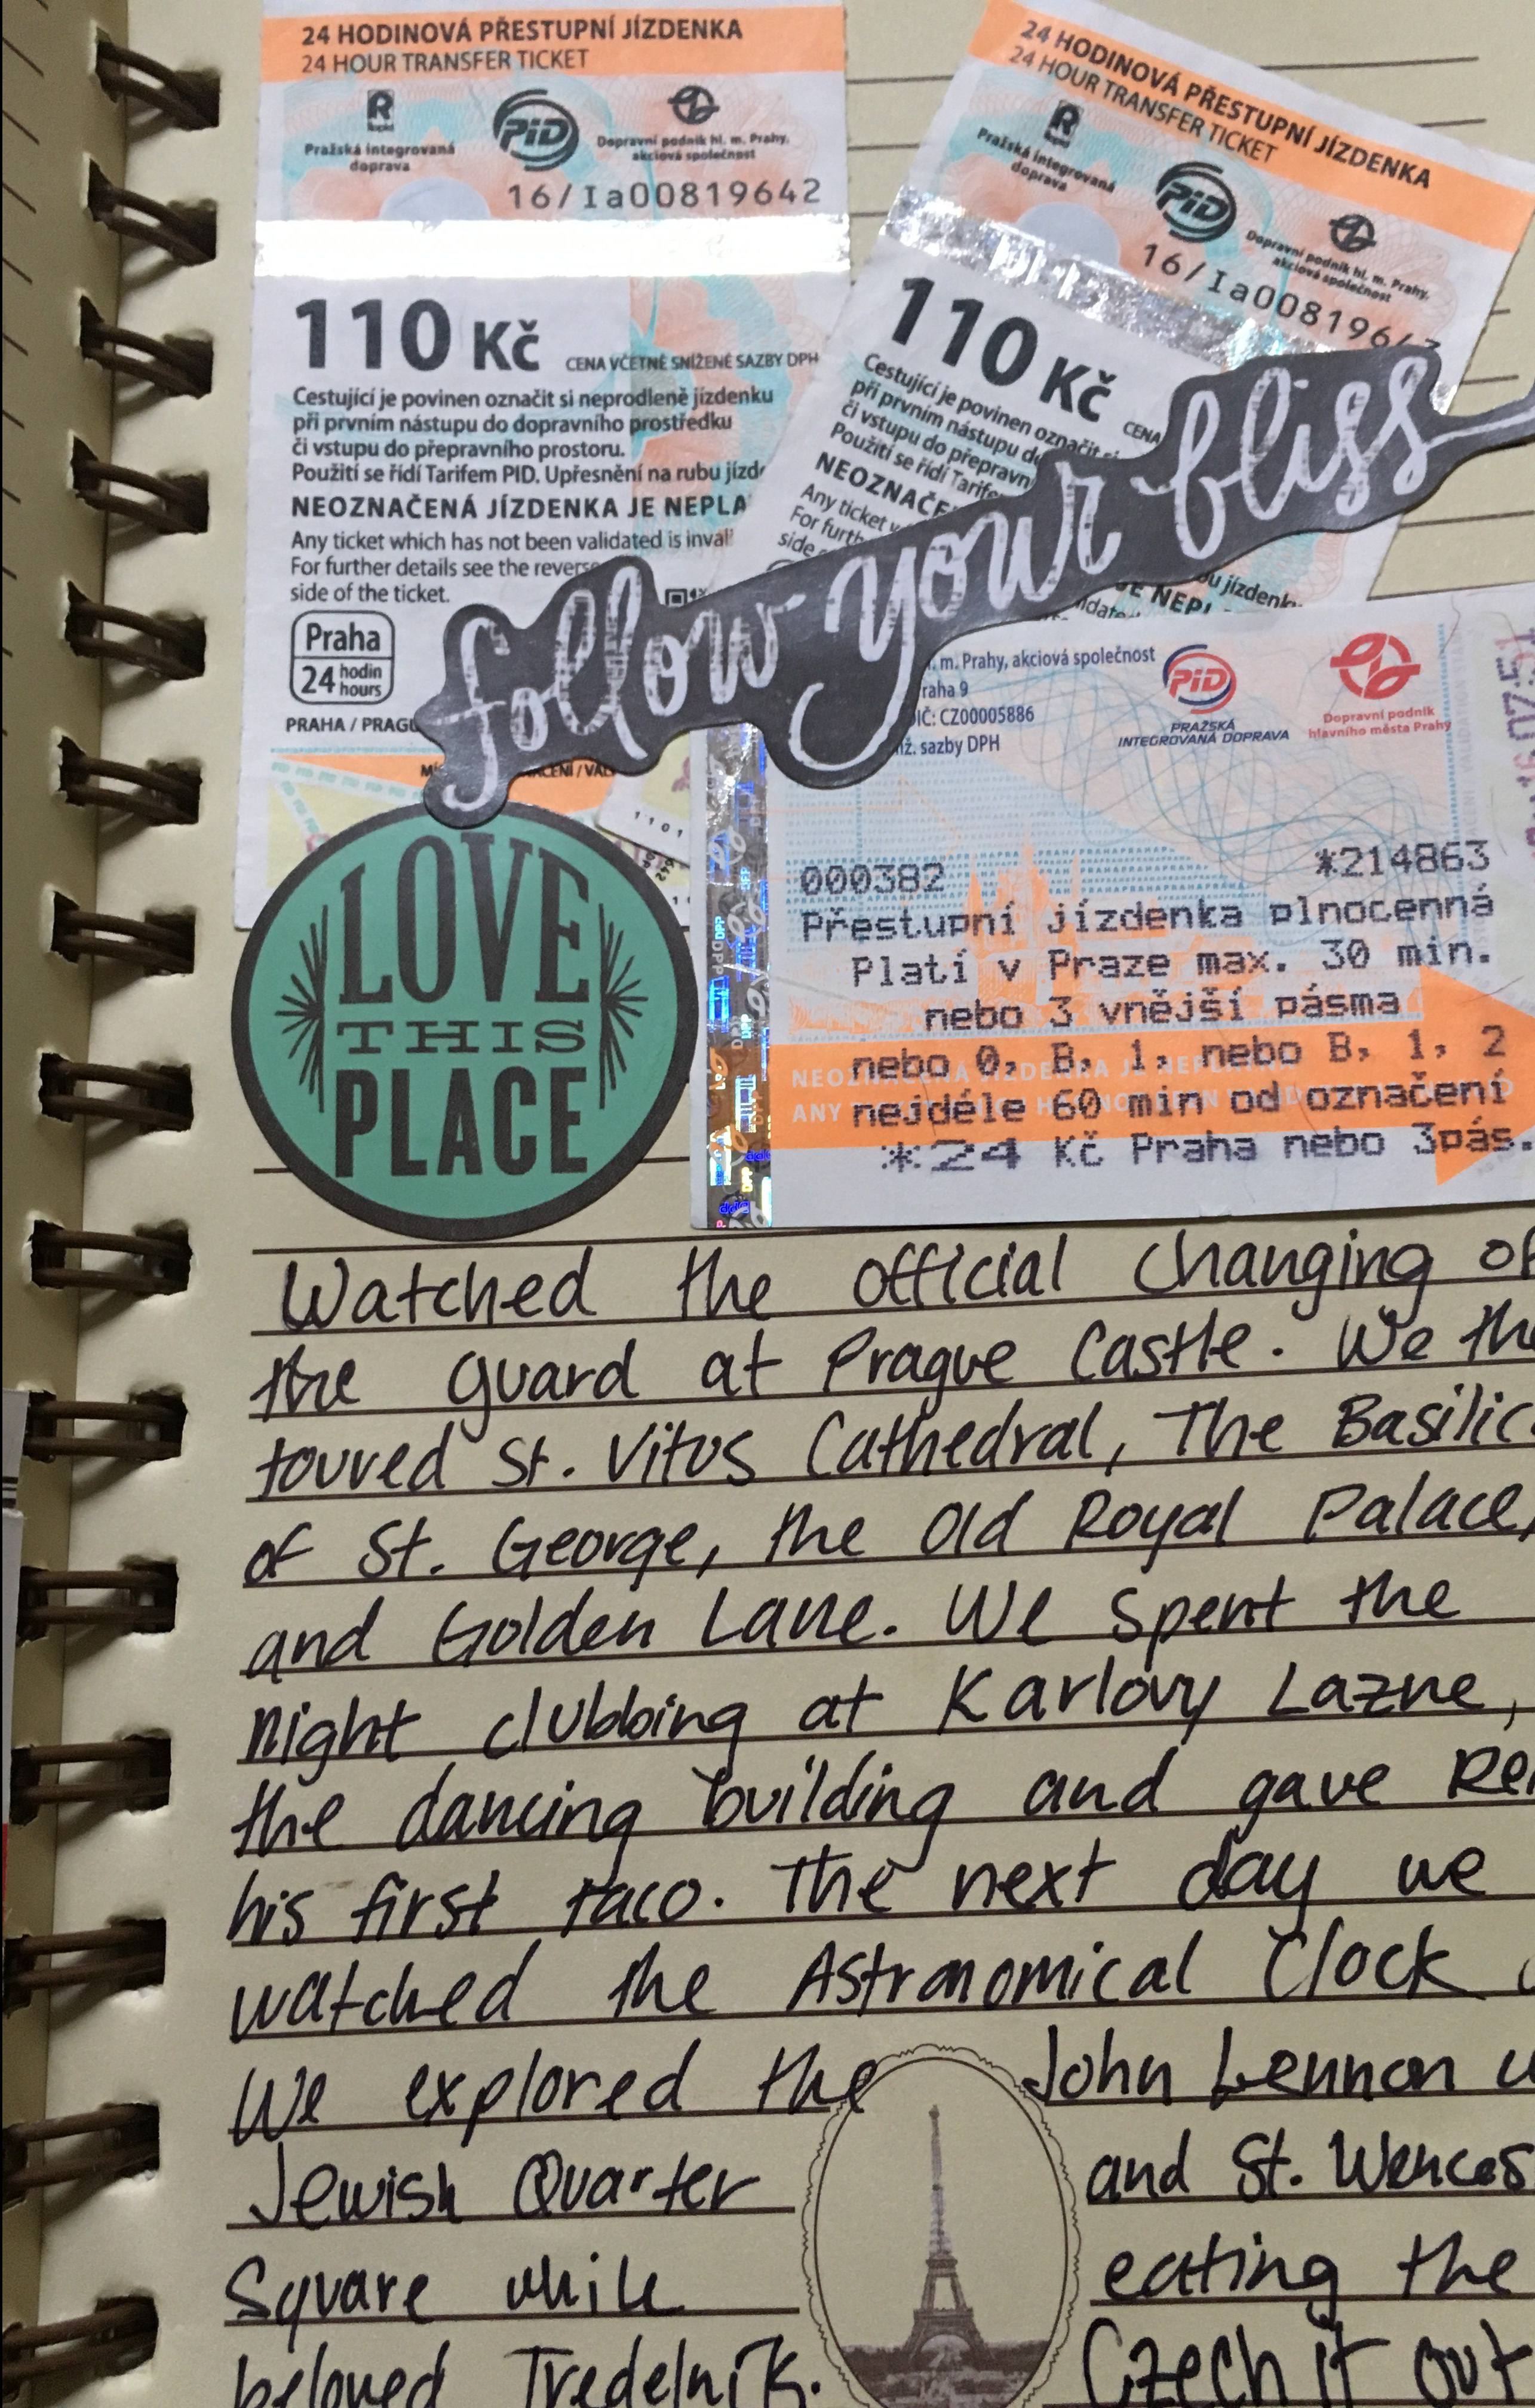 24 HODINOVÁ PŘESTUPNÍ JÍZDENKA
24 HOUR TRANSFER TICKET
R
Rapid
Pražská integrovaná
doprava
PiD
Dopravní podnik hl. m. Prahy,
akciová společnost
16/Ia00819642
110 Kč CENA VČETNĚ SNÍŽENÉ SAZBY DPH
Cestující je povinen označit si neprodleně jízdenku
při prvním nástupu do dopravního prostředku
či vstupu do přepravního prostoru.
Použití se řídí Tarifem PID. Upřesnění na rubu jízd
NEOZNAČENÁ JÍZDENKA JE NEPLA
Any ticket which has not been validated is inval
For further details see the reverse
side of the ticket.
Praha
24 hodin
hours
PRAHA / PRAGU
24 HODINOVÁ PŘESTUPNÍ JÍZDENKA
24 HOUR TRANSFER TICKET
R
Rapid
Pražská integrovaná
doprava
PiD
Dopravní podnik hl. m. Prahy,
akciová společnost
16/Ia008196
110 Kč CENA
Cestující je povinen označit si
při prvním nástupu do
či vstupu do přepravn
Použití se řídí Tarife
NEOZNAČE
Any ticket
For furth
side
u jízdenk
JE NEPL
follow your bliss
LOVE
THIS
PLACE
m. Prahy, akciová společnost
raha 9
DIČ: CZ00005886
niž. sazby DPH
PiD
PRAŽSKÁ
INTEGROVANÁ DOPRAVA
Dopravní podnik
hlavního města Prahy
000382 *214863
Přestupní jízdenka plnocenná
Platí v Praze max. 30 min.
nebo 3 vnější pásma
nebo 0, B, 1, nebo B, 1, 2
nejdéle 60 min od označení
*24 Kč Praha nebo 3pás.
Watched the official changing of
the guard at Prague Castle. We the
toured St. Vitus Cathedral, The Basilic
of St. George, the Old Royal Palace,
and Golden Lane. We spent the
night clubbing at Karlovy Lazne,
the dancing building and gave
his first taco. The next day we
watched the Astronomical Clock
We explored the John Lennon w
Jewish Quarter and St. Wences
Square while eating the
beloved Tredelnik. Czech it out